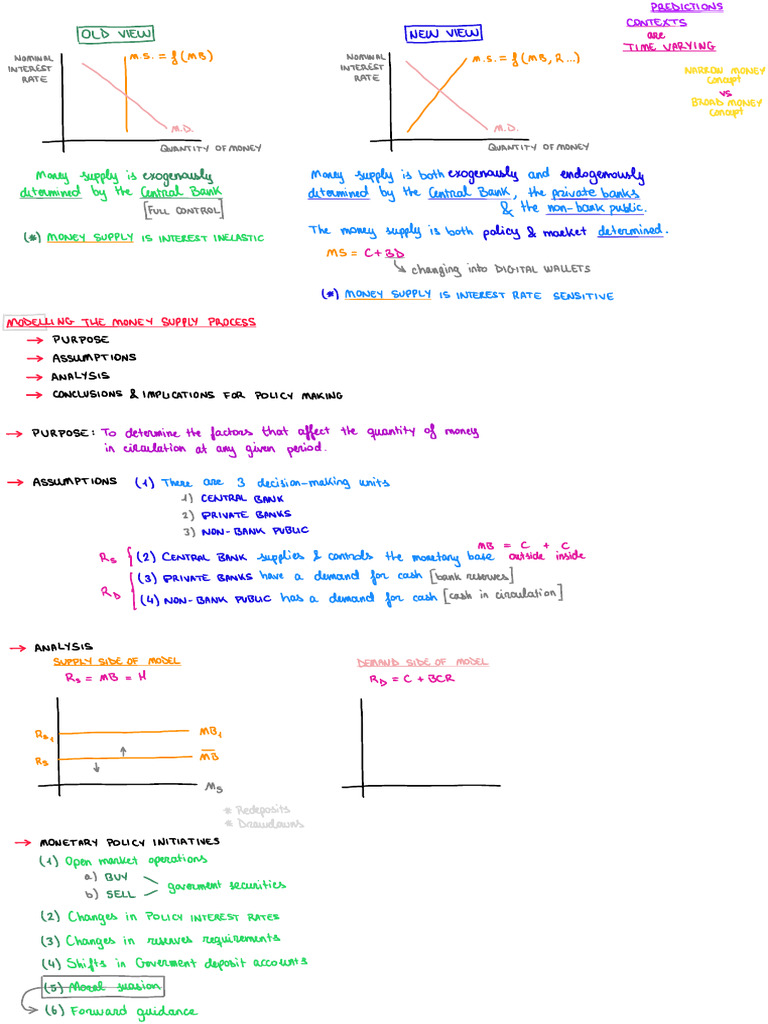 PREDICTIONS
CONTEXTS
are
TIME VARYING
NARROW MONEY
concept
vs
BROAD MONEY
concept
OLD VIEW
NOMINAL
INTEREST
RATE
M.S. = f(MB)
M.D.
QUANTITY OF MONEY
Money supply is exogenously
determined by the Central Bank
[FULL CONTROL]
(*) MONEY SUPPLY IS INTEREST INELASTIC
NEW VIEW
NOMINAL
INTEREST
RATE
M.S. = f(MB, r...)
M.D.
QUANTITY OF MONEY
Money supply is both exogenously and endogenously
determined by the Central Bank, the private banks
& the non-bank public.
The money supply is both policy & market determined.
MS = C + BD
changing into DIGITAL WALLETS
(*) MONEY SUPPLY IS INTEREST RATE SENSITIVE
MODELLING THE MONEY SUPPLY PROCESS
→ PURPOSE
→ ASSUMPTIONS
→ ANALYSIS
→ CONCLUSIONS & IMPLICATIONS FOR POLICY MAKING
→ PURPOSE: To determine the factors that affect the quantity of money
in circulation at any given period.
→ ASSUMPTIONS (1) There are 3 decision-making units
1) CENTRAL BANK
2) PRIVATE BANKS
3) NON-BANK PUBLIC
MB = C + C
outside inside
Rs (2) CENTRAL BANK supplies & controls the monetary base
RD (3) PRIVATE BANKS have a demand for cash [bank reserves]
(4) NON-BANK PUBLIC has a demand for cash [cash in circulation]
→ ANALYSIS
SUPPLY SIDE OF MODEL
Rs = MB = H
Rs₁ MB₁
Rs M̅B̅
Ms
DEMAND SIDE OF MODEL
RD = C + BCR
* Redeposits
* Drawdowns
→ MONETARY POLICY INITIATIVES
(1) Open market operations
a) BUY
b) SELL
goverment securities
(2) Changes in POLICY INTEREST RATES
(3) Changes in reserves requirements
(4) Shifts in Goverment deposit accounts
(5) Moral suasion
(6) Forward guidance